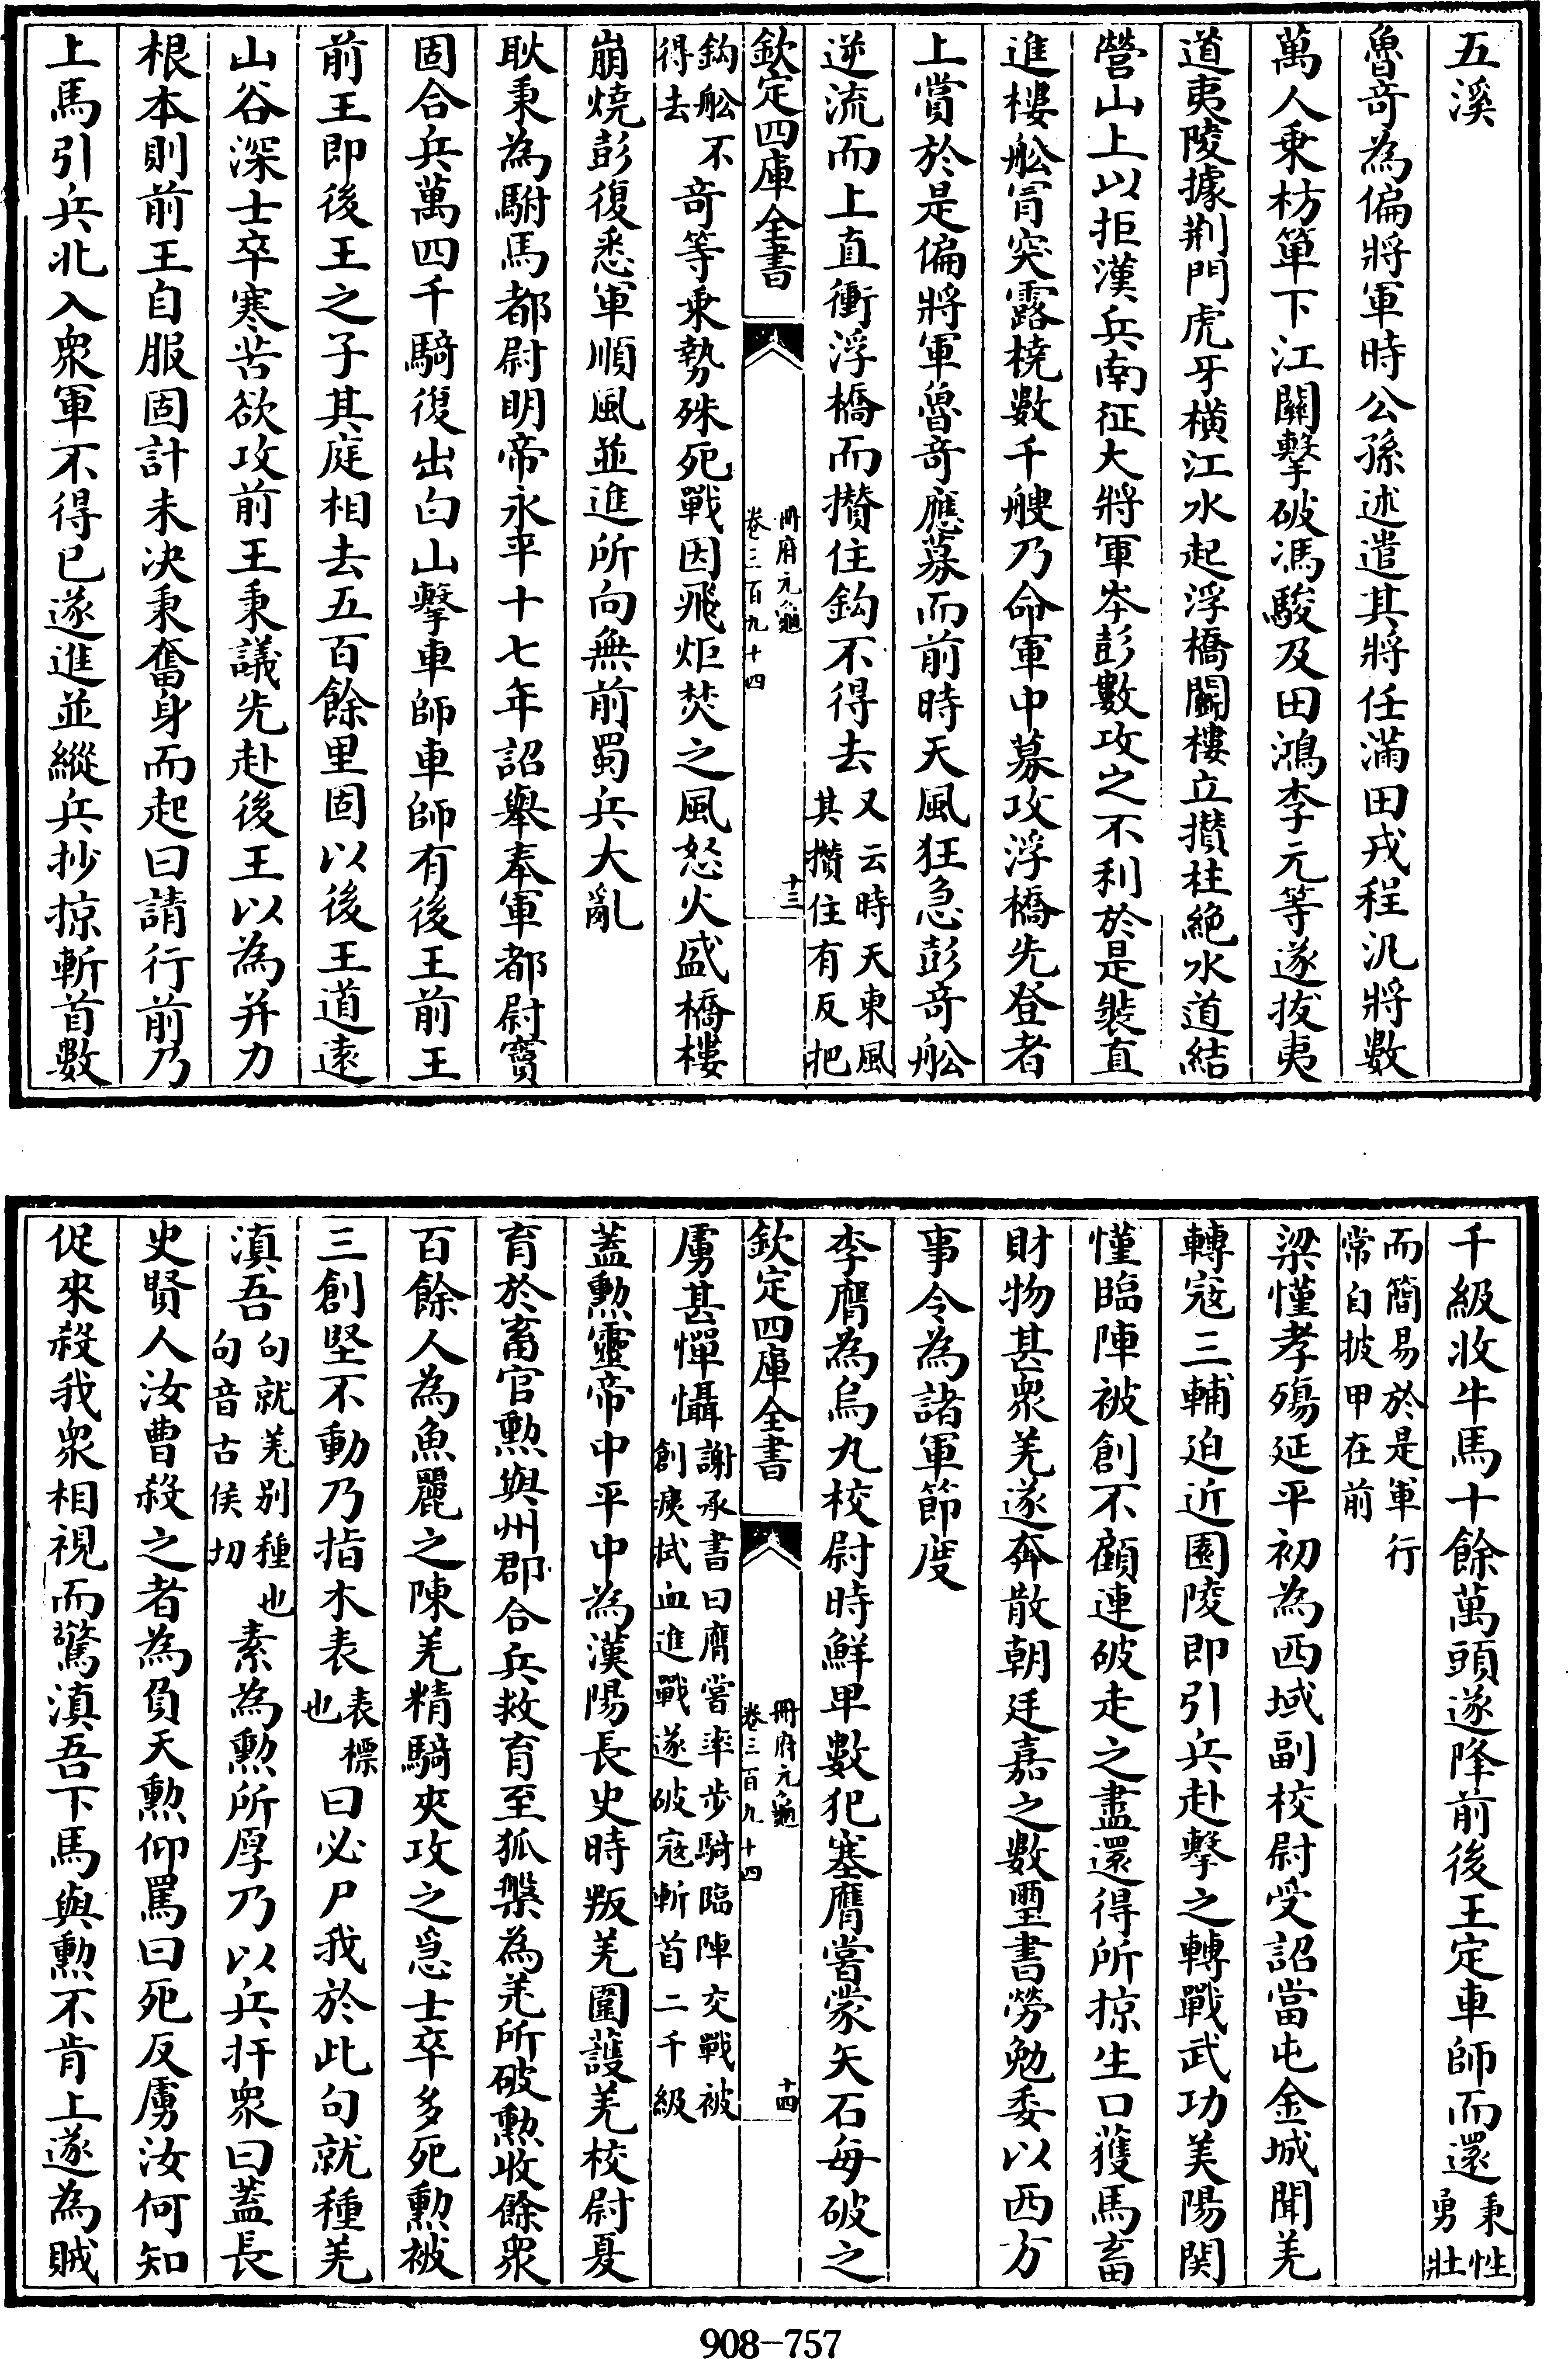 五溪
魯竒為偏將軍時公孫述遣其將任滿田戎程汎將數
萬人乗枋箄下江關擊破馮駿及田鴻李元等遂拔夷
道夷陵據荆門虎牙横江水起浮橋鬭樓立攅柱絶水道結
營山上以拒漢兵南征大將軍岑彭數攻之不利於是裝直
進樓舩冐突露橈數千艘乃命軍中募攻浮橋先登者
上賞於是偏將軍魯竒應募而前時天風狂急彭竒舩
逆流而上直衝浮橋而攅住鈎不得去又云時天東風
其攅住有反把
欽定四庫全書
冊府元龜
卷三百九十四
十三
鈎舩不
得去
竒等乗勢殊死戰因飛炬焚之風怒火盛橋樓
崩燒彭復悉軍順風並進所向無前蜀兵大亂
耿秉為駙馬都尉明帝永平十七年詔舉奉軍都尉竇
固合兵萬四千騎復出白山擊車師車師有後王前王
前王即後王之子其庭相去五百餘里固以後王道遠
山谷深士卒寒苦欲攻前王秉議先赴後王以為并力
根本則前王自服固計未决秉奮身而起曰請行前乃
上馬引兵北入衆軍不得已遂進並縱兵抄掠斬首數
千級收牛馬十餘萬頭遂降前後王定車師而還秉性
勇壯
而簡易於是軍行
常自披甲在前
梁慬孝殤延平初為西域副校尉受詔當屯金城聞羌
轉寇三輔迫近園陵即引兵赴擊之轉戰武功美陽関
慬臨陣被創不顧連破走之盡還得所掠生口獲馬畜
財物甚衆羌遂奔散朝廷嘉之數璽書勞勉委以西方
事令為諸軍節度
李膺為烏九校尉時鮮卑數犯塞膺嘗蒙矢石每破之
欽定四庫全書
冊府元龜
卷三百九十四
十四
虜甚憚懾謝承書曰膺嘗率步騎臨陣交戰被
創㾗拭血進戰遂破寇斬首二千級
蓋勲靈帝中平中為漢陽長史時叛羌圍護羌校尉夏
育於畜官勲與州郡合兵救育至狐槃為羌所破勲收餘衆
百餘人為魚麗之陳羌精騎夾攻之急士卒多死勲被
三創堅不動乃指木表表標
也
曰必尸我於此句就種羌
滇吾句就羌别種也
句音古侯切
素為勲所厚乃以兵扞衆曰蓋長
史賢人汝曹殺之者為負天勲仰罵曰死反虜汝何知
促來殺我衆相視而驚滇吾下馬與勲不肯上遂為賊
908-757